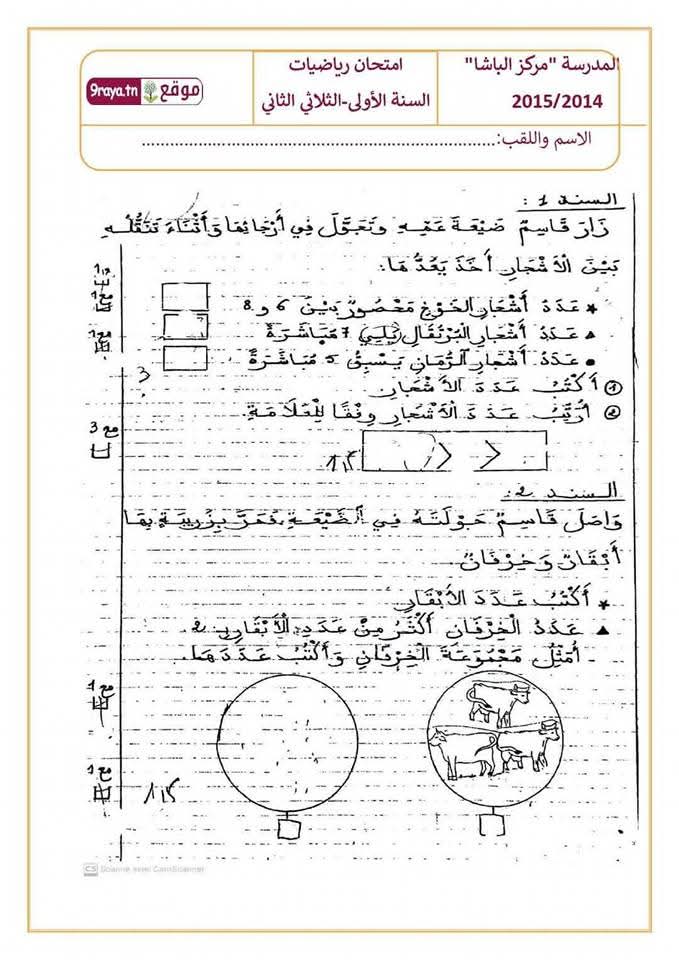 المدرسة "مركز الباشا"
2015/2014
امتحان رياضيات
السنة الأولى-الثلاثي الثاني
موقع 9raya.tn
الاسم واللقب:......................................................................
السند 1 :
زَارَ قَاسِمٌ ضَيْعَةَ عَمِّهِ وَتَجَوَّلَ فِي أَرْجَائِهَا وَأَثْنَاءَ تَنَقُّلِهِ
بَيْنَ الْأَشْجَارِ أَخَذَ يَعُدُّهَا.
★ عَدَدُ أَشْجَارِ الْخَوْخِ مَحْصُورٌ بَيْنَ 6 و 8
▲ عَدَدُ أَشْجَارِ الْبُرْتُقَالِ يَلِي 7 مُبَاشَرَةً
● عَدَدُ أَشْجَارِ الرُّمَّانِ يَسْبِقُ 5 مُبَاشَرَةً
① أَكْتُبُ عَدَدَ الْأَشْجَارِ
② أُرَتِّبُ عَدَدَ الْأَشْجَارِ وِفْقًا لِلْعَلَامَةِ.
> >
1,5
السند 2 :
وَاصَلَ قَاسِمٌ جَوْلَتَهُ فِي الضَّيْعَةِ فَمَرَّ بِزَرِيبَةٍ بِهَا
أَبْقَارٌ وَخِرْفَانٌ
★ أَكْتُبُ عَدَدَ الْأَبْقَارِ
▲ عَدَدُ الْخِرْفَانِ أَكْثَرُ مِنْ عَدَدِ الْأَبْقَارِ بـ 2
- أُمَثِّلُ مَجْمُوعَةَ الْخِرْفَانِ وَأَكْتُبُ عَدَدَهَا.
1,5
مع 1
مع 1
مع 1
3
مع 3
مع 1
مع 1
CS Scanné avec CamScanner